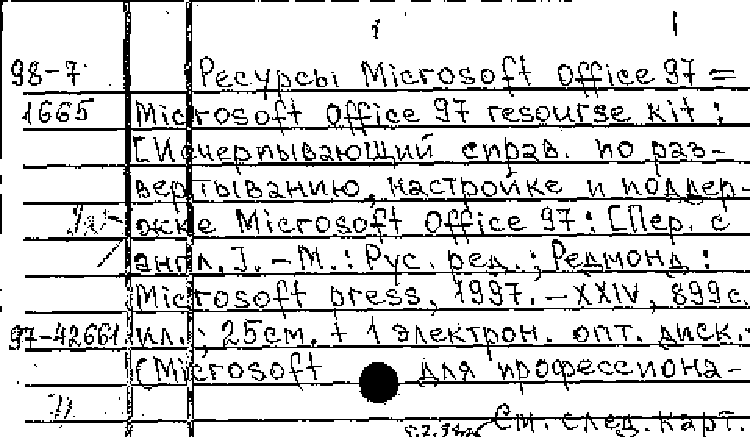 98-7 Ресурсы Microsoft Office 97 =
1665 Microsoft Office 97 resourse kit :
[Исчерпывающий справ. по раз-
вертыванию, настройке и поддер-
жке Microsoft Office 97 : [Пер. с
англ.]. - М. : Рус. ред. ; Редмонд :
Microsoft press, 1997. - XXIV, 899 с.
97-42661 ил. ; 25 см. + 1 электрон. опт. диск. -
(Microsoft для профессиона-
См. след. карт.